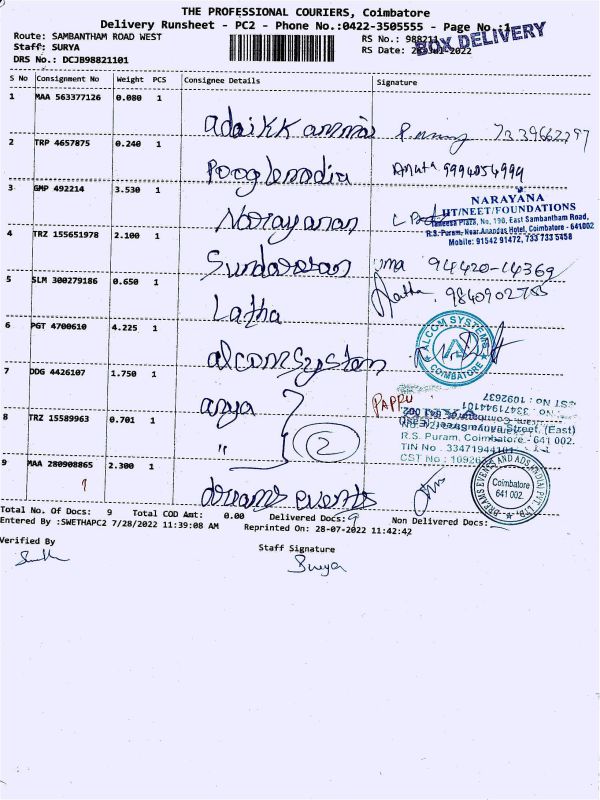 THE PROFESSIONAL COURIERS, Coimbatore
Delivery Runsheet - PC2 - Phone No.:0422-3505555 - Page No.:1
Route: SAMBANTHAM ROAD WEST
RS No.: 988211
BOX DELIVERY
Staff: SURYA
RS Date: 28-Jul-2022
DRS No.: DCJB98821101
S No Consignment No Weight PCS Consignee Details Signature
1 MAA 563377126 0.080 1
Adaikkammai 7339662297
2 TRP 4657875 0.240 1
Amuta 9994054999
3 GMP 492214 3.530 1
NARAYANA
IIT/NEET/FOUNDATIONS
Plaza, No, 190, East Sambantham Road,
R.S. Puram, Near Anandas Hotel, Coimbatore - 641002
Mobile: 91542 91472, 733 733 5458
Narayanan
4 TRZ 155651978 2.100 1
Sundararan uma 94420-14369
5 SLM 300279186 0.650 1
Latha Latha 9840902755
6 PGT 4700610 4.225 1
ALCOM SYSTEMS
COIMBATORE
alcom system
7 DDG 4426107 1.750 1
arya PAPPU
8 TRZ 15589963 0.701 1
" 2
Street, (East)
R.S. Puram, Coimbatore - 641 002.
TIN No : 33471944101
9 MAA 280908865 2.300 1
9
dreams events
DREAMS EVENTS AND ADS (INDIA) PVT. LTD.
Coimbatore
641 002.
Total No. Of Docs: 9 Total COD Amt: 0.00 Delivered Docs: 9 Non Delivered Docs:
Entered By :SWETHAPC2 7/28/2022 11:39:08 AM Reprinted On: 28-07-2022 11:42:42
Verified By
Staff Signature
Surya